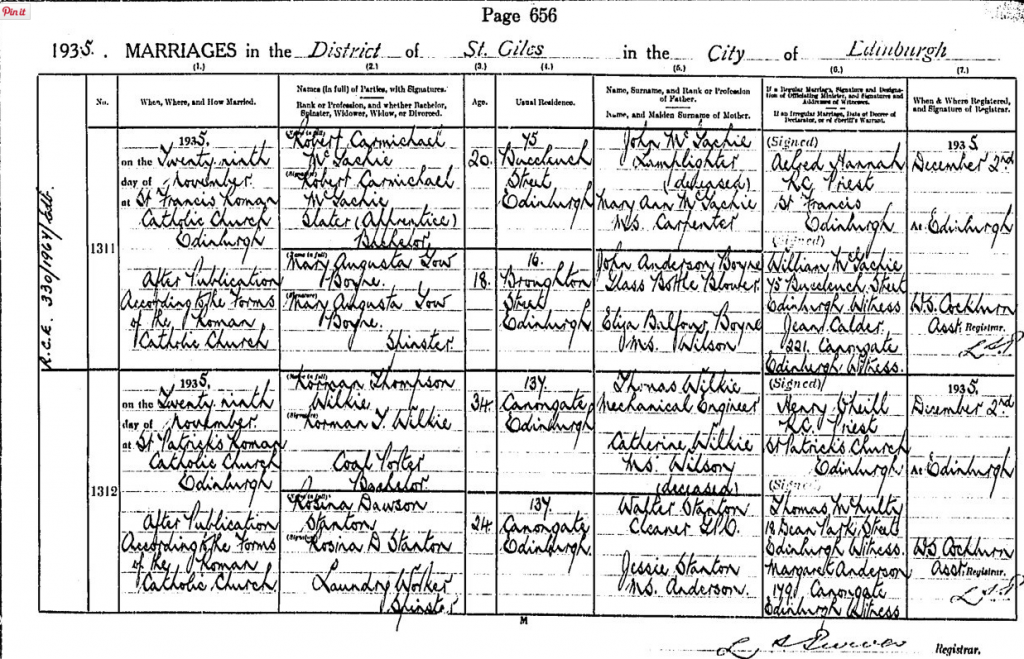 Pin it
Page 656
1935. MARRIAGES in the District of St. Giles in the City of Edinburgh
(1.) (2.) (3.) (4.) (5.) (6.) (7.)
No.
When, Where, and How Married.
Names (in full) of Parties, with Signatures.
Rank or Profession, and whether Bachelor,
Spinster, Widower, Widow, or Divorced.
Age.
Usual Residence.
Name, Surname, and Rank or Profession
of Father.
Name, and Maiden Surname of Mother.
If a Regular Marriage, Signature and Designa-
tion of Officiating Minister, and Signatures and
Addresses of Witnesses.
If an Irregular Marriage, Date of Decree of
Declarator, or of Sheriff's Warrant.
When & Where Registered,
and Signature of Registrar.
R.C.E. 330/1964
1311
1935.
on the Twenty ninth
day of November
at St Francis Roman
Catholic Church
Edinburgh
After Publication
According to the Forms
of the Roman
Catholic Church
(Name in full)
Robert Carmichael
McLachie
(Signature)
Robert Carmichael
McLachie
Slater (Apprentice)
Bachelor
20.
45
Buccleuch
Street
Edinburgh
John McLachie
Lamplighter
(deceased)
Mary Ann McLachie
M.S. Carpenter
(Signed)
Alfred Hannah
R.C. Priest
St Francis
Edinburgh
1935
December 2nd
At Edinburgh
(Name in full)
Mary Augusta Low
Boyne.
(Signature)
Mary Augusta Low
Boyne.
Spinster
18.
16.
Broughton
Street
Edinburgh
John Anderson Boyne
Glass Bottle Blower
Eliza Balfour Boyne
M.S. Wilson
(Signed)
William McLachie
45 Buccleuch Street
Edinburgh Witness
Jean Calder
221. Canongate
Edinburgh Witness.
W.S. Cockburn
Asst. Registrar.
1312
1935.
on the Twenty ninth
day of November
at St Patricks Roman
Catholic Church
Edinburgh
After Publication
According to the Forms
of the Roman
Catholic Church
(Name in full)
Norman Thompson
Wilkie
(Signature)
Norman T. Wilkie
Coal Porter
Bachelor
34.
137.
Canongate
Edinburgh
Thomas Wilkie
Mechanical Engineer
Catherine Wilkie
M.S. Wilson
(deceased)
(Signed)
Henry O'Neill
R.C. Priest
St Patricks Church
Edinburgh
1935.
December 2nd
At Edinburgh
(Name in full)
Rosina Dawson
Stanton
(Signature)
Rosina D Stanton
Laundry Worker
Spinster
24.
137.
Canongate
Edinburgh.
Walter Stanton
Cleaner G.P.O.
Jessie Stanton
M.S. Anderson.
(Signed)
Thomas McNulty
18 Dean Park Street
Edinburgh Witness.
Margaret Anderson
179 Canongate
Edinburgh Witness
W.S. Cockburn
Asst. Registrar.
M
Registrar.